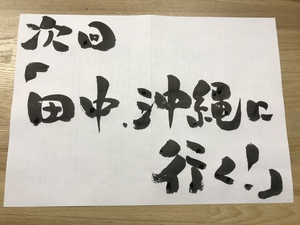 次回
「田中、沖縄に
行く!」